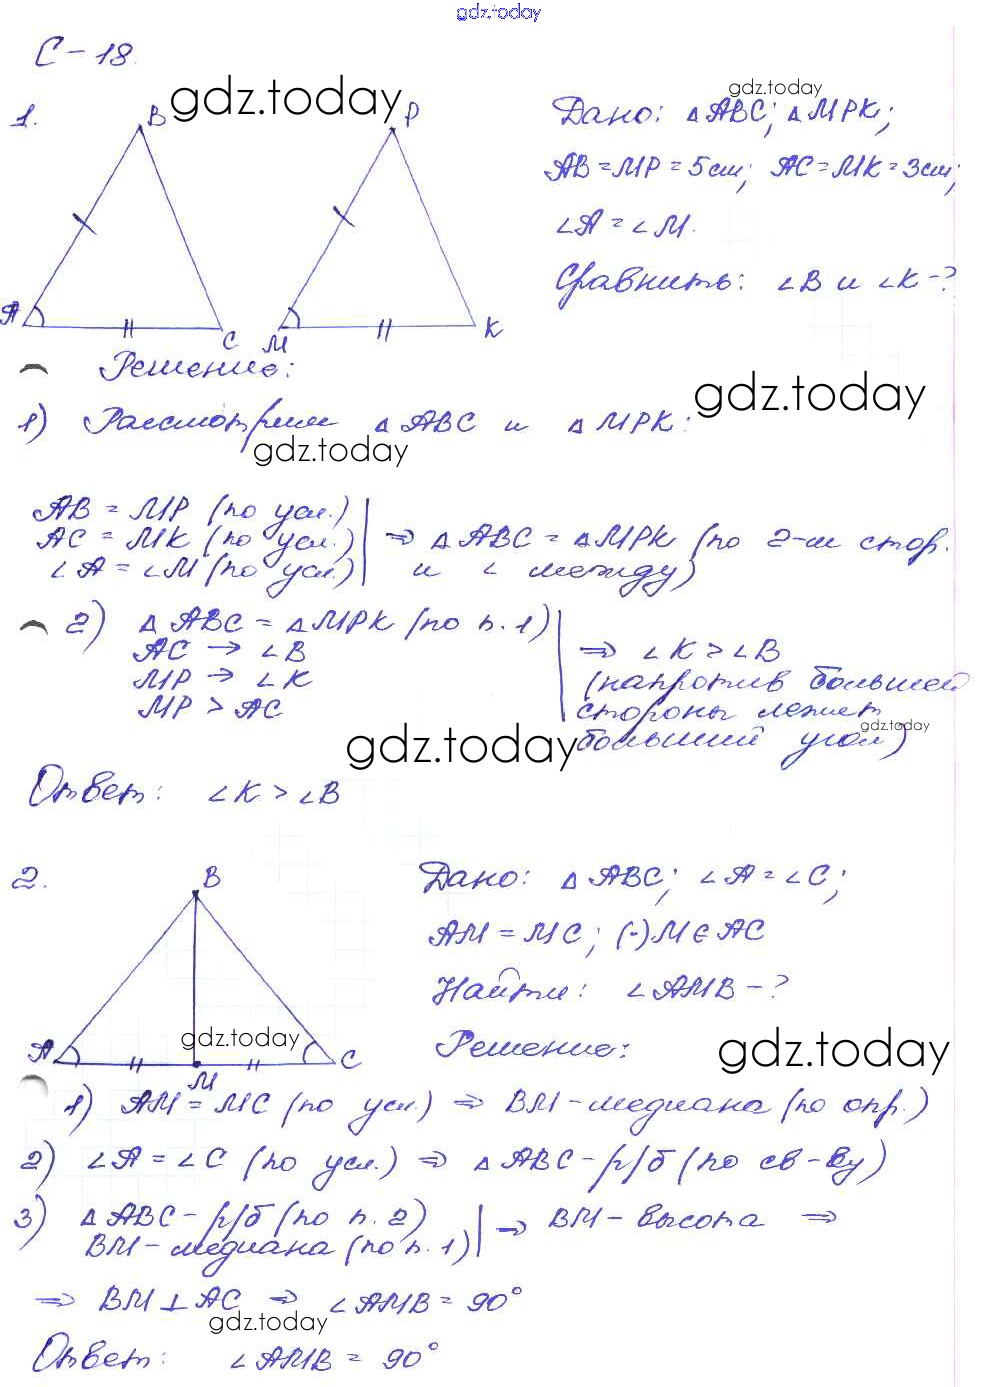 gdz.today
С-18.
gdz.today
1.
В
Р
А
С
М
К
gdz.today
Дано: △ABC; △MPK;
AB = MP = 5см; AC = MK = 3см;
∠A = ∠M.
Сравнить: ∠B и ∠K - ?
Решение:
gdz.today
1) Рассмотрим △ABC и △MPK:
gdz.today
AB = MP (по усл.)
AC = MK (по усл.)
∠A = ∠M (по усл.)
⇒ △ABC = △MPK (по 2-м стор.
и ∠ между)
2) △ABC = △MPK (по п. 1)
AC → ∠B
MP → ∠K
MP > AC
⇒ ∠K > ∠B
(напротив большей
стороны лежит
больший угол)
gdz.today
gdz.today
Ответ: ∠K > ∠B
2.
B
A
M
C
gdz.today
Дано: △ABC; ∠A = ∠C;
AM = MC; (·)M ∈ AC
Найти: ∠AMB - ?
Решение:
gdz.today
1) AM = MC (по усл.) ⇒ BM - медиана (по опр.)
2) ∠A = ∠C (по усл.) ⇒ △ABC - р/б (по св-ву)
3) △ABC - р/б (по п. 2)
BM - медиана (по п. 1)
⇒ BM - высота ⇒
⇒ BM ⊥ AC ⇒ ∠AMB = 90°
gdz.today
Ответ: ∠AMB = 90°